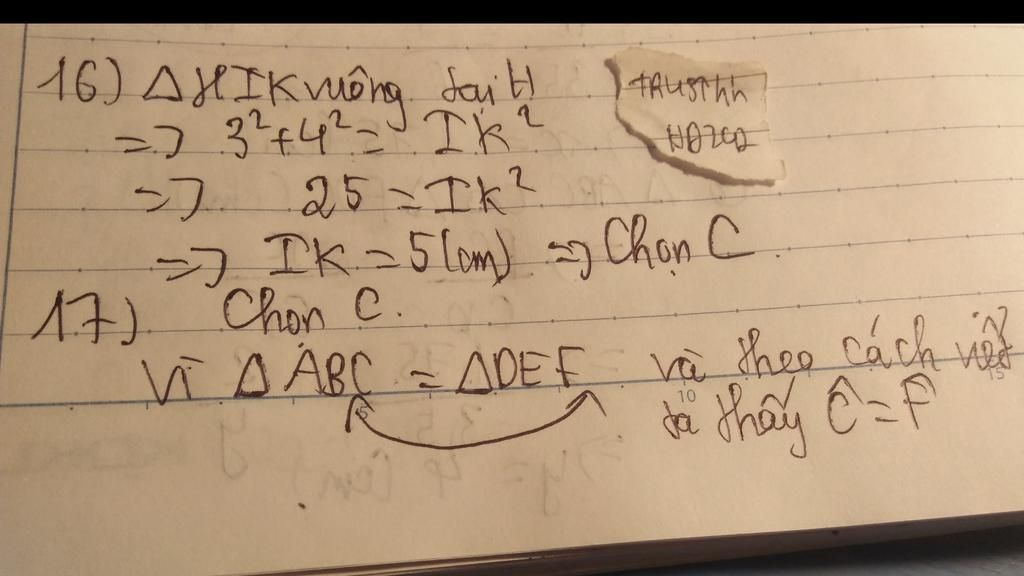 16) Δ HIK vuông tại H
=> 3² + 4² = Ik²
=> 25 = Ik²
=> IK = 5 (cm) => Chọn C.
17) Chọn C.
Vì Δ ABC = ΔDEF và theo cách viết
ta thấy Ĉ = F̂